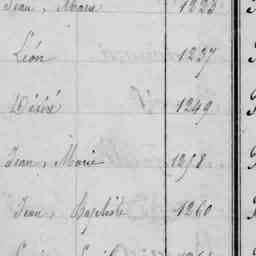 Jean, Marie 1223
Léon 1237
Désiré 1249
Jean, Marie 1258
Jean, Baptiste 1260